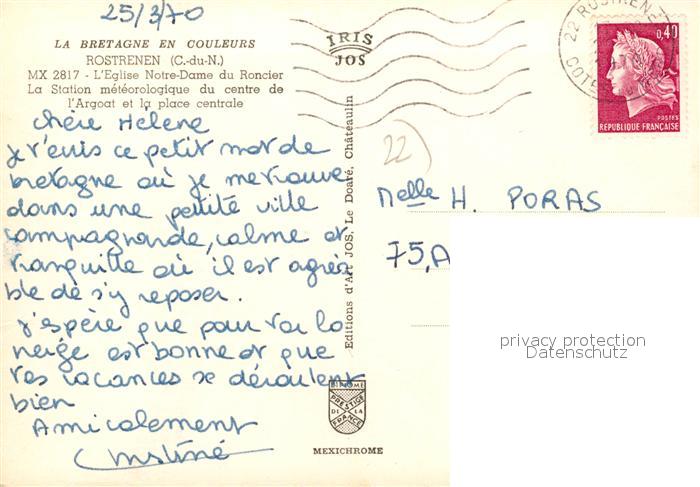 25/3/70
LA BRETAGNE EN COULEURS
ROSTRENEN (C.-du-N.)
MX 2817 - L'Eglise Notre-Dame du Roncier
La Station météorologique du centre de
l'Argoat et la place centrale
IRIS
JOS
22 ROSTRENEN
COTES
0,40
POSTES
REPUBLIQUE FRANÇAISE
chère Hélène
je t'envis ce petit mot de
bretagne où je me trouve
dans une petite ville
campagnarde, calme et
tranquille où il est agréa
ble de s'y reposer.
j'espère que pour toi la
neige est bonne et que
tes vacances se déroulent
bien
Amicalement
Christine
Editions d'Art JOS, Le Doaré, Châteaulin
22)
Melle H. PORAS
75, A
privacy protection
Datenschutz
DIPLOME
PRESTIGE
DE LA
FRANCE
MEXICHROME